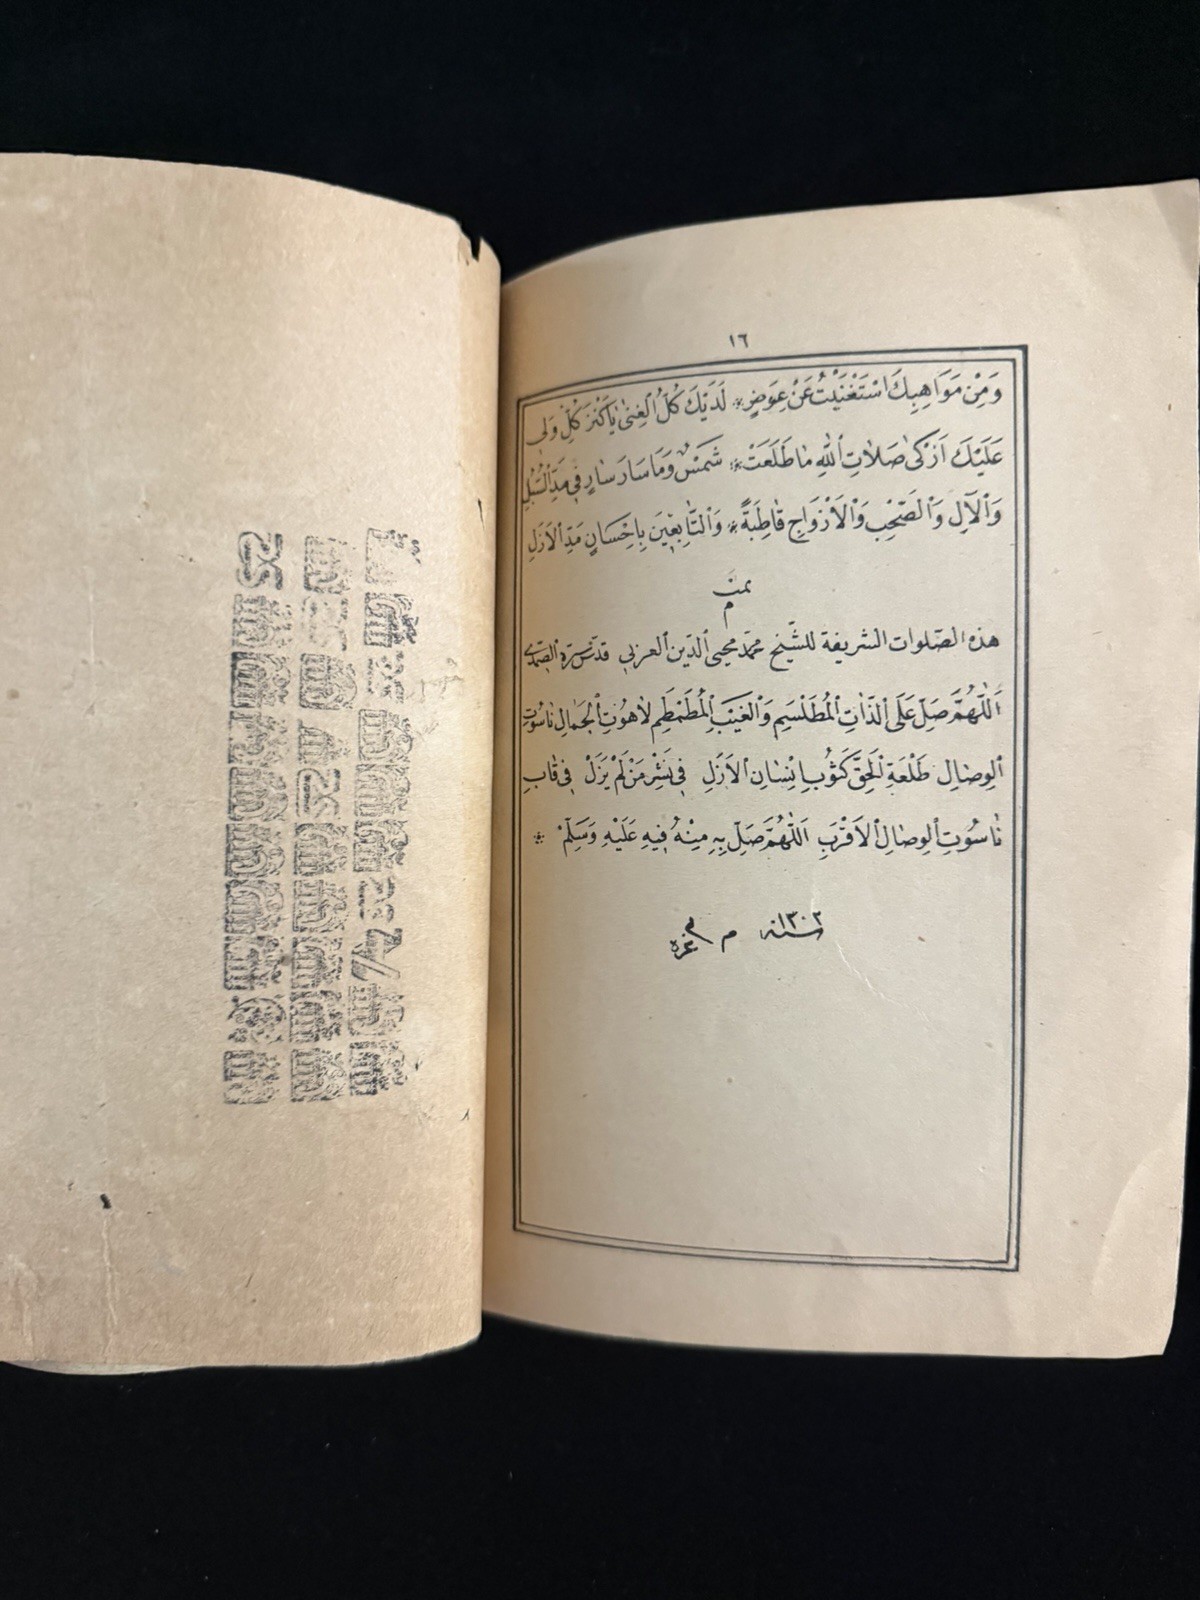 ١٦
وَمِنْ مَوَاهِبِكَ اسْتَغْنَيْتُ عَنْ عِوَضٍ * لَدَيْكَ كُلُّ الْغِنٰى يَاكَنْزَ كُلِّ وَلِى
عَلَيْكَ اَزْكٰى صَلَاتِ اللّٰهِ مٰا طَلَعَتْ * شَمْسٌ وَمَا سَارَ سٰارٍ فِى مَدِّ السُّبُلِ
وَالْآلِ وَالصَّحْبِ وَالْاَزْوَاجِ قٰاطِبَةً * وَالتّٰابِعٖينَ بِاِحْسَانٍ مَدَ الْاَزَلِ
تمت
م
هذه الصّلوات الشريفة للشّيخ محمّد محيى الدّين العربى قدّس سرّه الصّمدى
اَللّٰهُمَّ صَلِّ عَلَى الذَّاتِ الْمُطَلْسَمِ وَالْغَيْبِ الْمُطَمْطَمِ لَاهُوتِ الْجَمَالِ نٰاسُوتِ
الْوِصٰالِ طَلْعَةِ الْحَقِّ كَثَوْبِ اِنْسٰانِ الْاَزَلِ فِى نَشْرِ مَنْ لَمْ يَزَلْ فِى قٰابِ
نٰاسُوتِ الْوِصٰالِ الْاَقْرَبِ اَللّٰهُمَّ صَلِّ بِهِ مِنْهُ فِيهِ عَلَيْهِ وَسَلِّمْ *
سنه ١٣٠٢ م غره